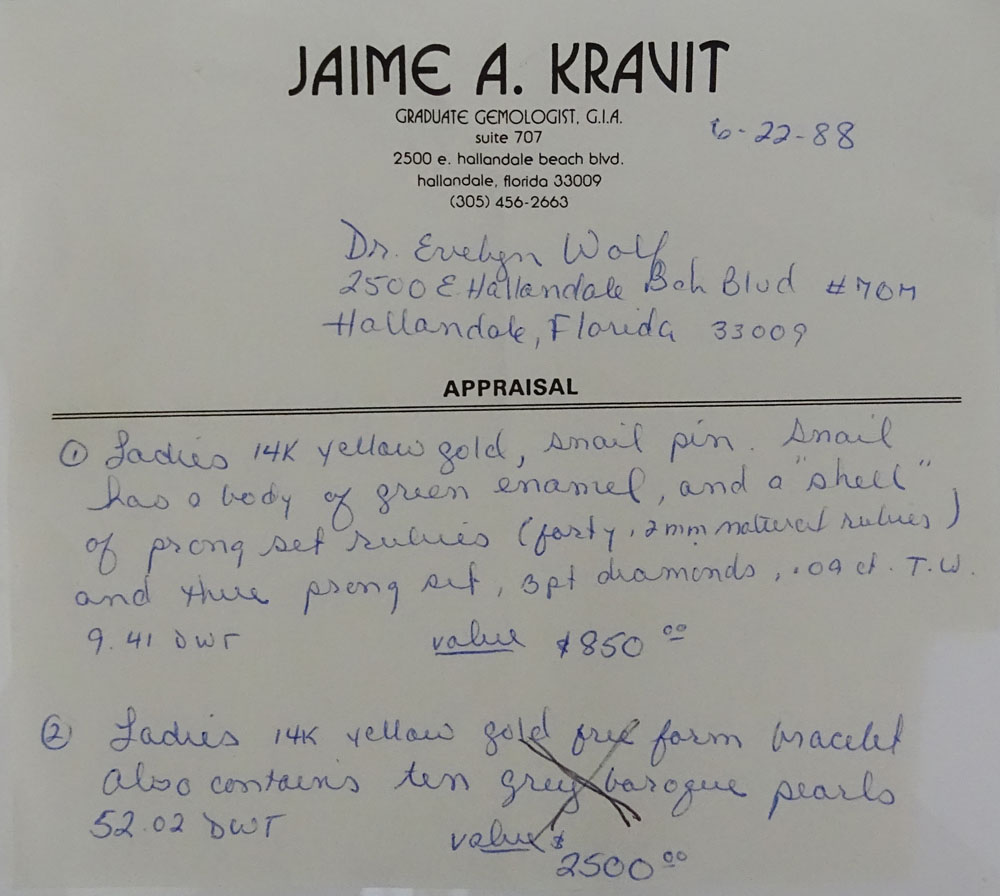 JAIME A. KRAVIT
GRADUATE GEMOLOGIST, G.I.A.
suite 707
2500 e. hallandale beach blvd.
hallandale, florida 33009
(305) 456-2663
6-22-88
Dr. Evelyn Wolf
2500 E. Hallandale Bch Blvd
Hallandale, Florida 33009
APPRAISAL
① Ladies 14K yellow gold, snail pin. Snail
has a body of green enamel, and a "shell"
of prong set rubies (forty, 2mm natural rubies)
and three prong set, 3pt diamonds, .09 ct. T.W.
9.41 DWT value $850 00
② Ladies 14K yellow gold free form bracelet
also contains ten grey baroque pearls
52.02 DWT value $
2500 00